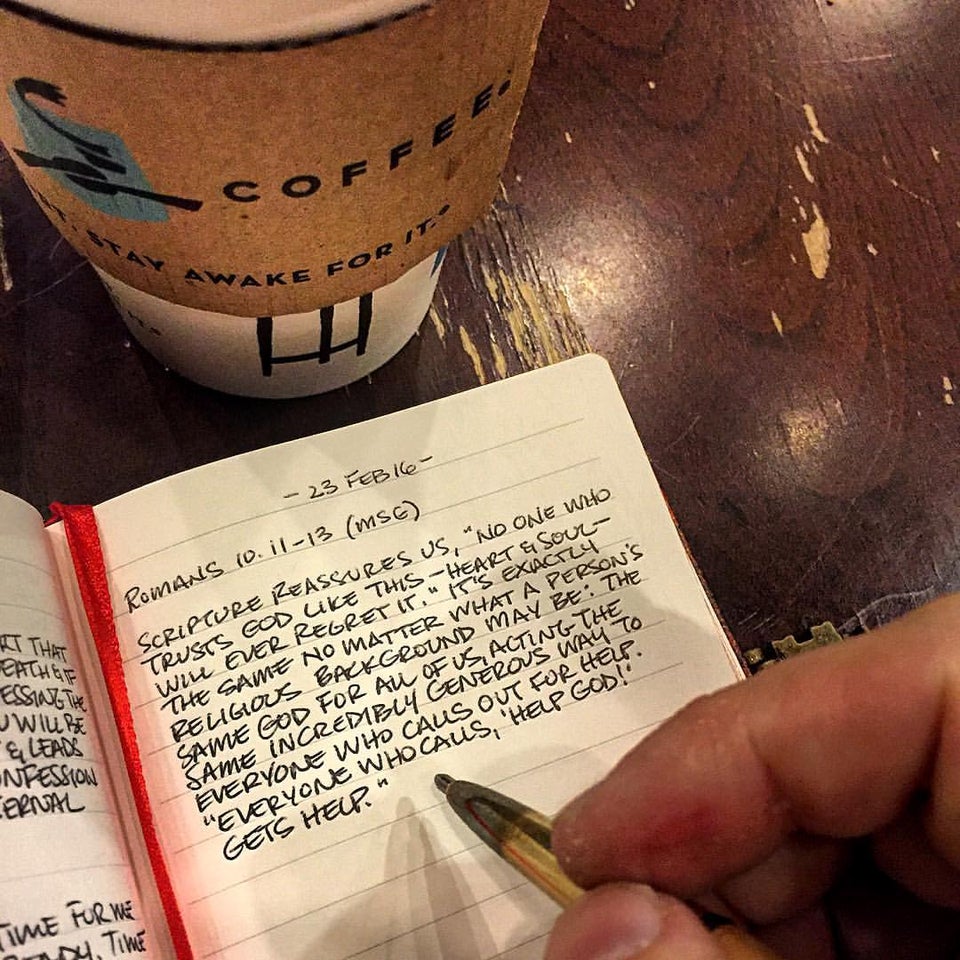 COFFEE.
STAY AWAKE FOR IT.
IT.
- 23 FEB 16 -
ROMANS 10.11-13 (MSG)
SCRIPTURE REASSURES US, "NO ONE WHO
TRUSTS GOD LIKE THIS - HEART & SOUL -
WILL EVER REGRET IT." IT'S EXACTLY
THE SAME NO MATTER WHAT A PERSON'S
RELIGIOUS BACKGROUND MAY BE: THE
SAME GOD FOR ALL OF US, ACTING THE
SAME INCREDIBLY GENEROUS WAY TO
EVERYONE WHO CALLS OUT FOR HELP.
"EVERYONE WHO CALLS, 'HELP GOD!'
GETS HELP."
THAT
DEATH & IF
THE
U WILL BE
& LEADS
CONFESSION
ETERNAL
TIME FOR ME
TIME